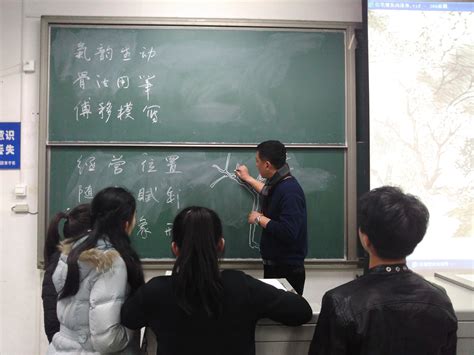 氣韵生动
骨法用筆
傳移模寫
經营位置
随 賦彩
象形
意识
丢失